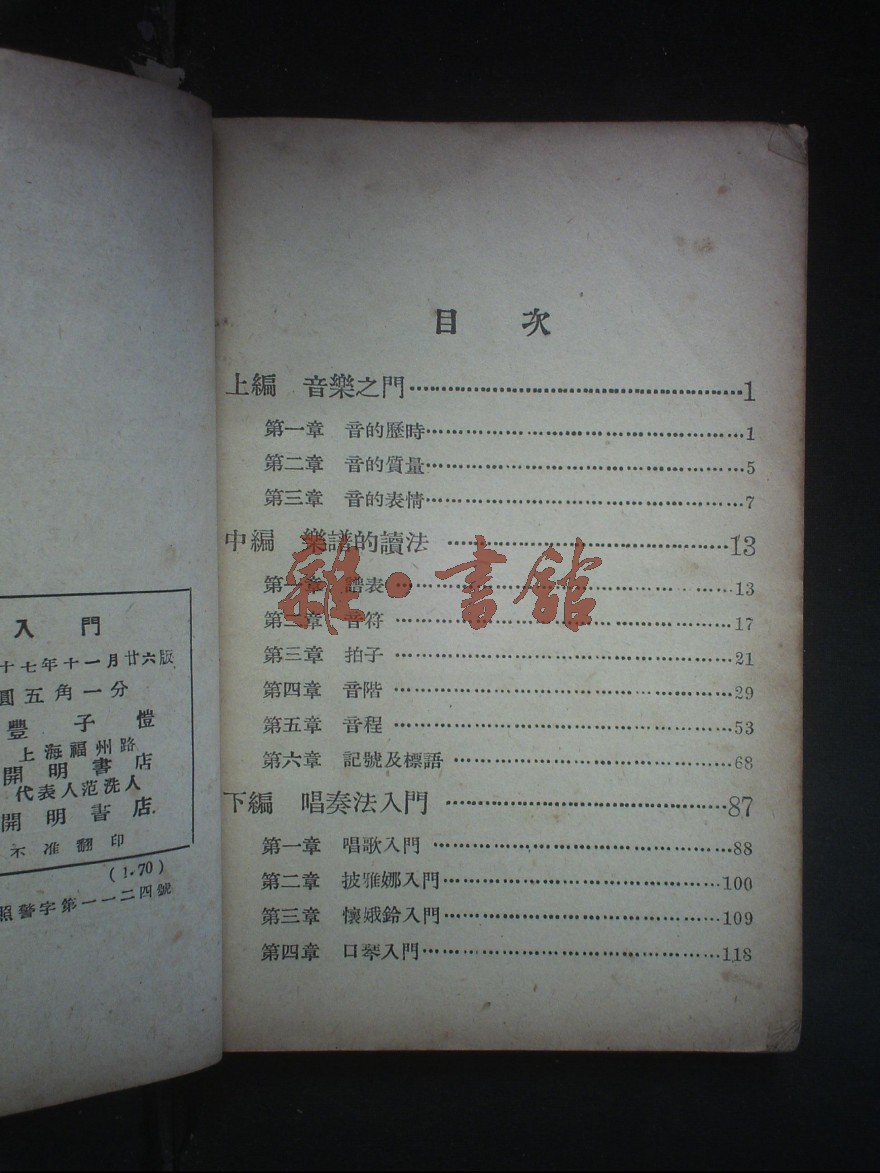 入門
十七年十一月廿六版
圓五角一分
豐子愷
上海福州路
開明書店
代表人范洗人
開明書店
不准翻印
(1.70)
照警字第一一二四號
目次
上編 音樂之門…………1
第一章 音的歷時…………1
第二章 音的質量…………5
第三章 音的表情…………7
中編 樂譜的讀法…………13
第一章 譜表…………13
第二章 音符…………17
第三章 拍子…………21
第四章 音階…………29
第五章 音程…………53
第六章 記號及標語…………68
下編 唱奏法入門…………87
第一章 唱歌入門…………88
第二章 披雅娜入門…………100
第三章 懷娥鈴入門…………109
第四章 口琴入門…………118
雜·書館